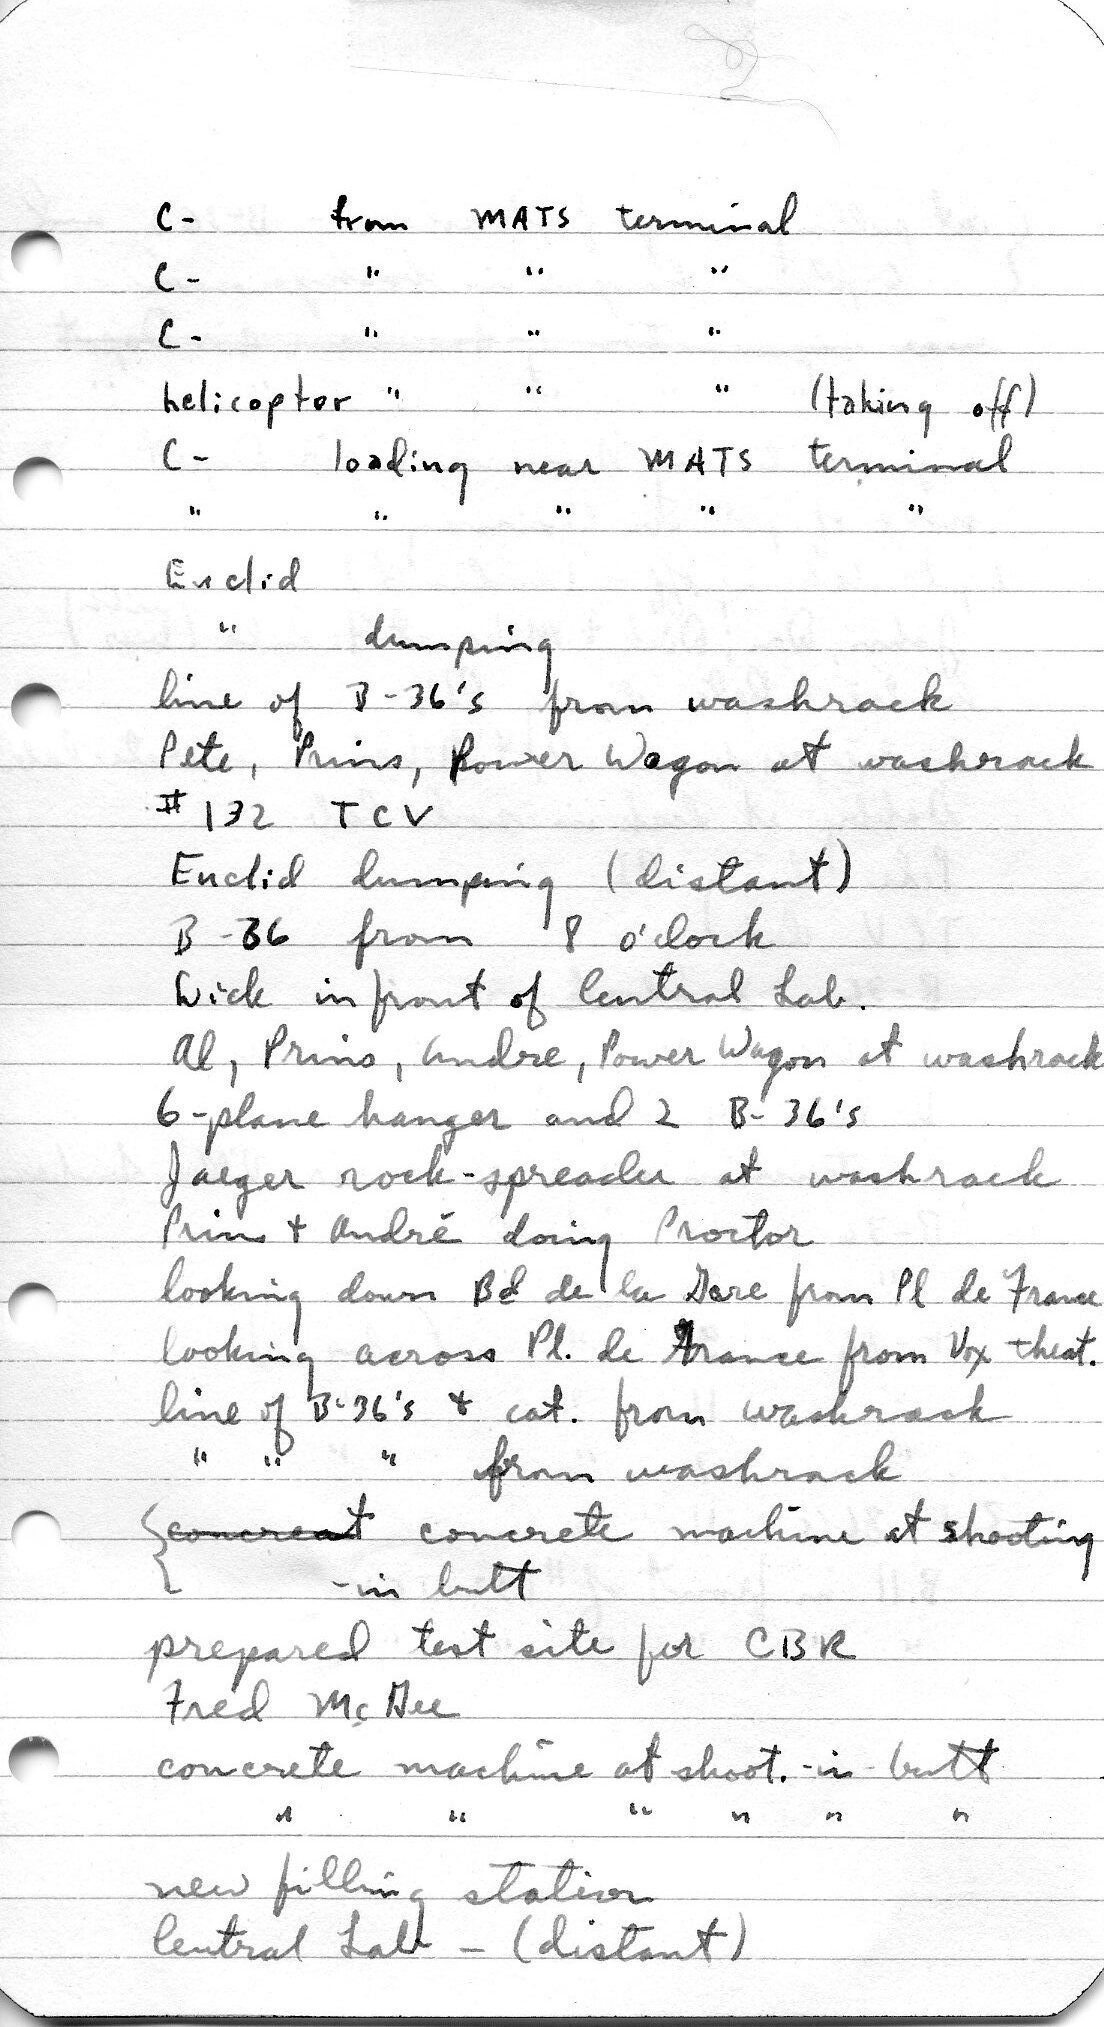 C- from MATS terminal
C- " " "
C- " " "
helicoptor " " " (taking off)
C- loading near MATS terminal
" " " " "
Euclid
" dumping
line of B-36's from washrack
Pete, Prins, Power Wagon at washrack
#132 TCV
Euclid dumping (distant)
B-36 from 8 o'clock
Dick in front of Central Lab.
Al, Prins, Andre, Power Wagon at washrack
6-plane hanger and 2 B-36's
Jaeger rock-spreader at washrack
Prins + André doing Proctor
looking down Bd de la Gare from Pl de France
looking across Pl. de France from Vox theat.
line of B-36's + cat. from washrack
" " " from washrack
concreat concrete machine at shooting
-in butt
prepared test site for CBR
Fred McGee
concrete machine at shoot.-in-butt
" " " " " "
new filling station
Central Lab - (distant)